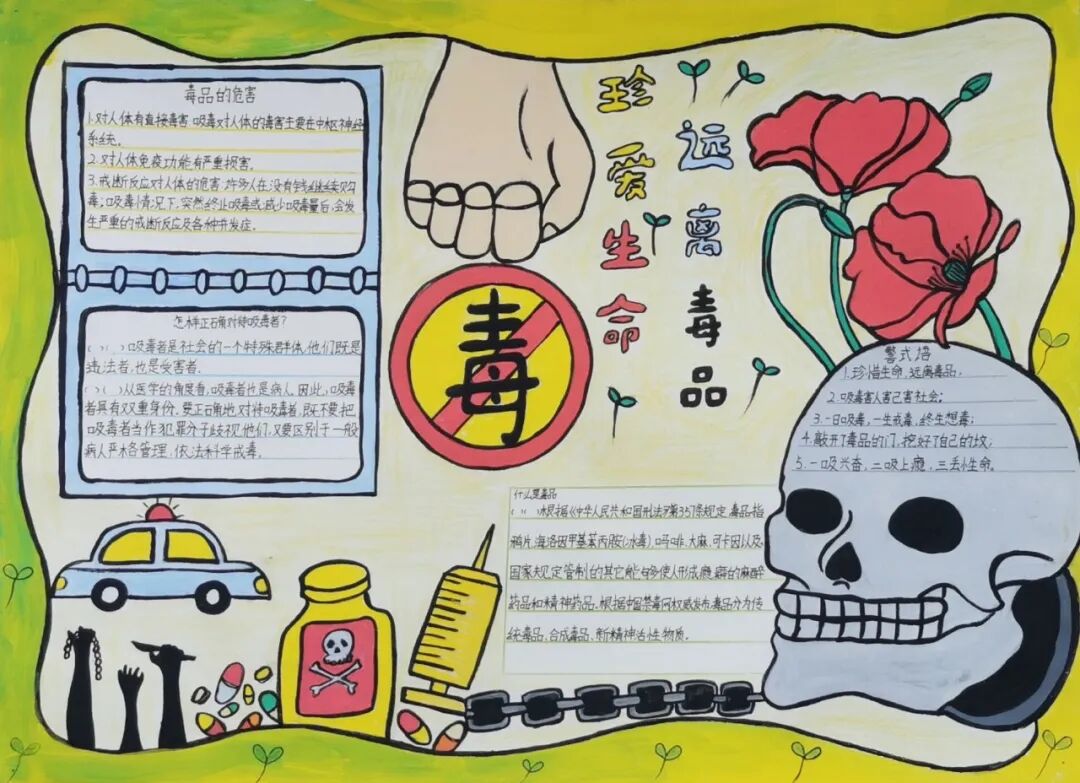 毒品的危害
1.对人体有直接毒害 吸毒对人体的毒害主要在中枢神经
系统。
2.对人体免疫功能有严重损害。
3.戒断反应对人体的危害:许多人在没有钱继续购
毒;吸毒情况下,突然终止吸毒或减少吸毒量后,会发
生严重的戒断反应及各种并发症。
怎样正确对待吸毒者?
( )( )吸毒者是社会的一个特殊群体,他们既是
违法者,也是受害者.
( )( )从医学的角度看,吸毒者也是病人,因此,吸毒
者具有双重身份。要正确地对待吸毒者,既不要把
吸毒者当作犯罪分子歧视他们,又要区别于一般
病人严格管理,依法科学戒毒。
珍爱生命
远离毒品
毒
警式语
1.珍惜生命,远离毒品,
2.吸毒害人害己害社会;
3.一日吸毒,一生戒毒,终生想毒;
4.敲开了毒品的门,挖好了自己的坟,
5.一吸兴奋,二吸上瘾,三丢小生命。
什么是毒品
( )( )根据《中华人民共和国刑法》第357条规定,毒品指
鸦片,海洛因甲基苯丙胺(冰毒),吗啡、大麻,可卡因以及
国家规定管制的其它能够使人形成瘾癖的麻醉
药品和精神药品、根据中国禁毒网权威发布,毒品分为传
统毒品、合成毒品、新精神活性物质。